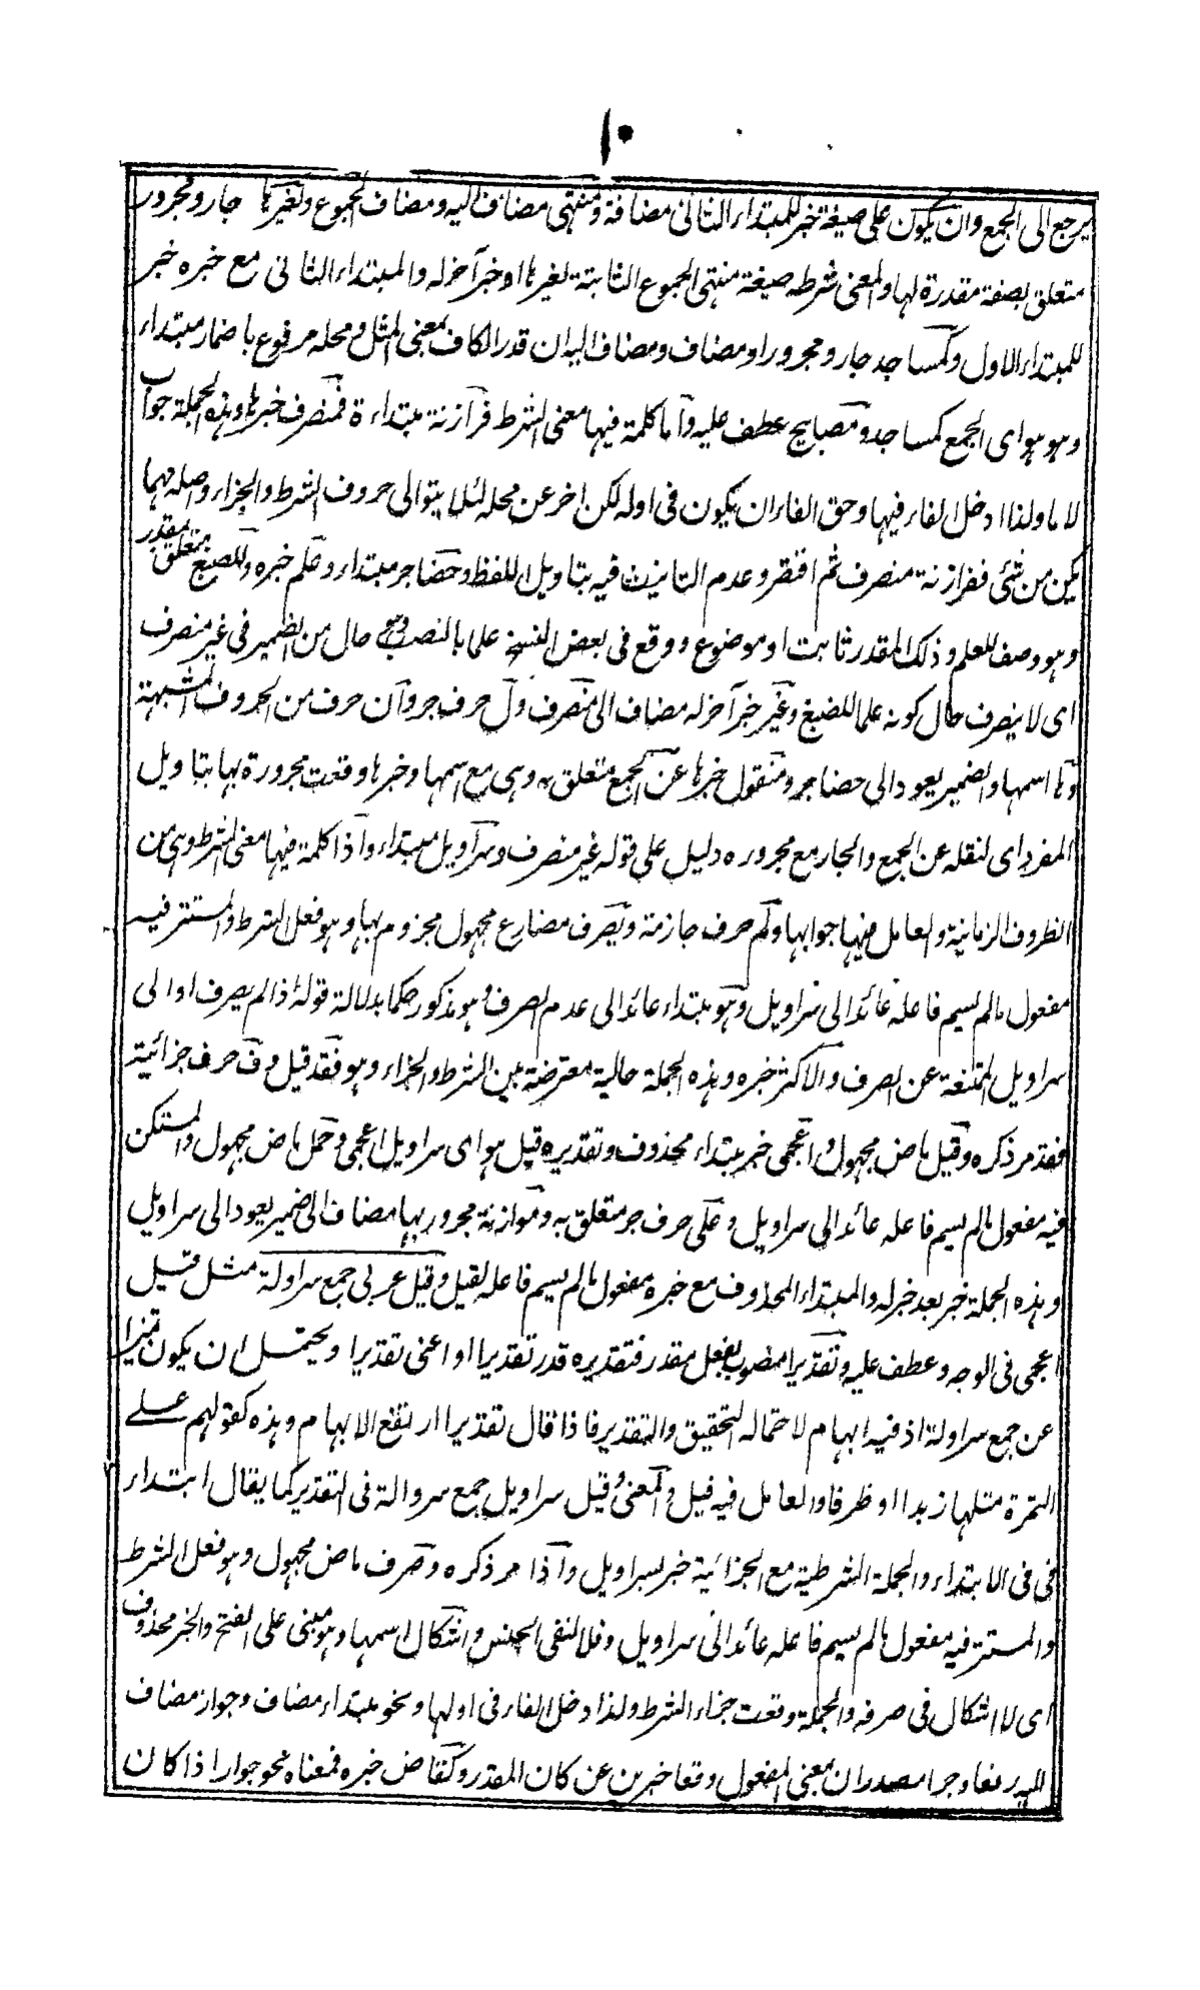 ١٠
يرجع الى الجمع وان يكون على صيغة خبر للمبتداء الثانى مضافة ومنتهى مضاف اليه ومضاف الجموع ولغيرها جار ومجرور
متعلق بصفة مقدرة لها والمعنى شرطه صيغة منتهى الجموع الثابتة لغيرها او خبر آخر له والمبتداء الثانى مع خبره خبر
للمبتداء الاول وكمساجد جار ومجرور او مضاف ومضاف اليه ان قدر الكاف بمعنى المثل ومحله مرفوع باضمار مبتداء
وهو هو اى الجمع كمساجد ومصابيح عطف عليه وآما كلمة فيها معنى الشرط فرآزنة مبتداءة فمنصرف خبرها وهذه الجملة جواب
لاما ولذا ادخل الفاء فيها وحق الفاء ان يكون فى اوله لكن اخر عن محله لئلا يتوالى حروف الشرط والجزاء واصله مهما
يكن من شئى ففرازنة منصرف ثم اقتصر وعدم التانيث فيه بتاويل اللفظ وحضاجر مبتداء وعلم خبره وللضبع متعلق بمقدر
وهو وصف للعلم وذلك المقدر ثابت او موضوع ووقع فى بعض النسخ علما بالنصب وهو حال من الضمير فى غير منصرف
اى لا ينصرف حال كونه علما للضبغ وغير خبر آخر له مضاف الى منصرف ول حرف جر وآن حرف من الحروف المشبهة
وها اسمها والضمير يعود الى حضاجر ومنقول خبرها عن الجمع متعلق به وهى مع اسمها وخبرها وقعت مجرورة بها بتاويل
المفرد اى لنقله عن الجمع والجار مع مجروره دليل على قوله غير منصرف وسراويل مبتداء وآذا كلمة فيها معنى الشرط وهى من
الظروف الزمانية والعامل فيها جوابها ولم حرف جازمة ويصرف مضارع مجهول مجزوم بها وهو فعل الشرط والمستتر فيه
مفعول مالم يسم فاعله عائد الى سراويل وهو مبتداء عائد الى عدم الصرف وهو مذكور حكما بدلالة قوله اذا لم يصرف او الى
سراويل الممتنعة عن الصرف والاكثر خبره وهذه الجملة حالية معترضة بين الشرط والجزاء وهو فقد قيل وف حرف جزائية
فقد مر ذكره وقيل ماض مجهول واعجمى خبر مبتداء محذوف وتقديره قيل هو اى سراويل اعجمى وحمل ماض مجهول والمستكن
فيه مفعول مالم يسم فاعله عائد الى سراويل وعلى حرف جر متعلق به وموازنة مجرور بها مضاف الى ضمير يعود الى سراويل
وهذه الجملة خبر بعد خبر له والمبتداء المحذوف مع خبره مفعول مالم يسم فاعله لقيل وقيل عربى جمع سراولة مثل قيل
اعجمى فى الوجه وعطف عليه وتقديرا منصوب بفعل مقدر فتقديره قدر تقديرا او اعنى تقديرا ويحتمل ان يكون تميزا
عن جمع سراولة اذ فيه ابهام لاحتماله التحقيق والتقدير فاذا قال تقديرا ارتفع الابهام وهذه كقولهم على
التمرة مثلها زبدا او ظرفا والعامل فيه قيل والمعنى وقيل سراويل جمع سروالة فى التقدير كما يقال ابتداء
فى فى الابتداء والجملة الشرطية مع الجزائية خبر لسراويل وآذا مر ذكره وصرف ماض مجهول وهو فعل الشرط
والمستتر فيه مفعول مالم يسم فاعله عائد الى سراويل وفلا لنفى الجنس واشكال اسمها وهو مبنى على الفتح والخبر محذوف
اى لا اشكال فى صرفه والجملة وقعت جزاء الشرط ولذا دخل الفاء فى اولها ونحو مبتداء مضاف وجوار مضاف
اليه رفعا وجرا مصدران بمعنى المفعول وقعا خبرين عن كان المقدر وكقاض خبره فمعناه نحو جوار اذا كان